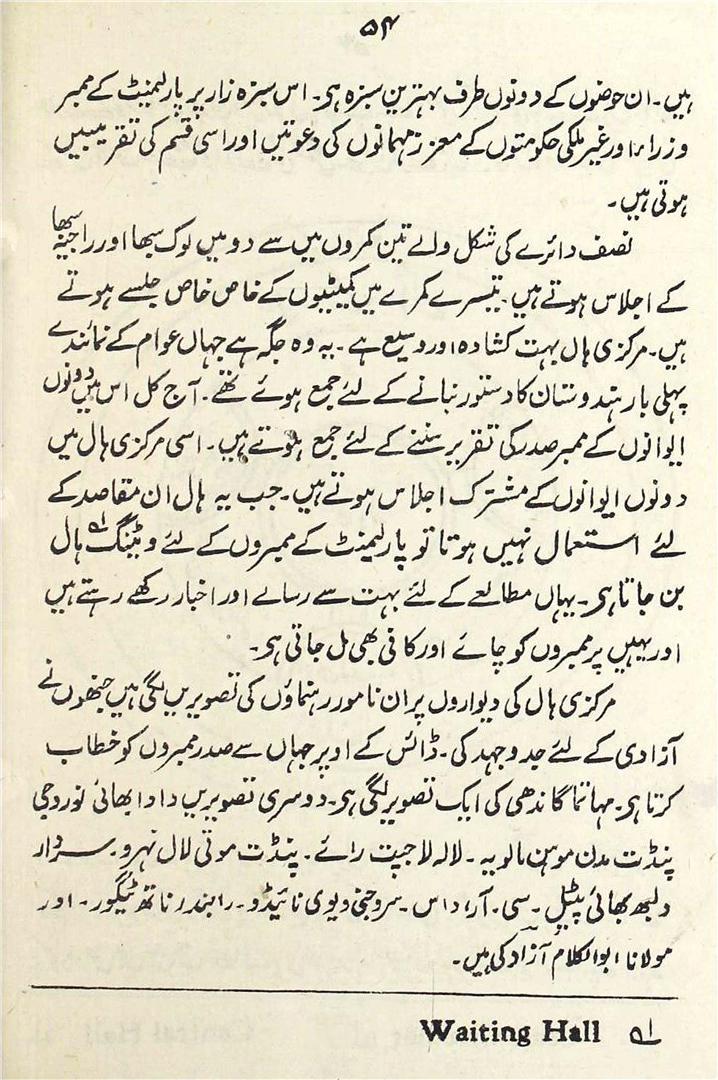 ۵۴
ہیں۔ ان حوضوں کے دونوں طرف بہترین سبزہ ہی۔ اس سبزہ زار پر پارلیمنٹ کے ممبر
وزراء اور غیر ملکی حکومتوں کے معزز مہمانوں کی دعوتیں اور اسی قسم کی تقریبیں
ہوتی ہیں۔
نصف دائرے کی شکل والے تین کمروں میں سے دو میں لوک سبھا اور راجیہ سبھا
کے اجلاس ہوتے ہیں۔ تیسرے کمرے میں کمیٹیوں کے خاص خاص جلسے ہوتے
ہیں۔ مرکزی ہال بہت کشادہ اور وسیع ہے۔ یہ وہ جگہ ہے جہاں عوام کے نمائندے
پہلی بار ہندوستان کا دستور بنانے کے لئے جمع ہوئے تھے۔ آج کل اس میں دونوں
ایوانوں کے ممبر صدر کی تقریر سننے کے لئے جمع ہوتے ہیں۔ اسی مرکزی ہال میں
دونوں ایوانوں کے مشترک اجلاس ہوتے ہیں۔ جب یہ ہال ان مقاصد کے
لئے استعمال نہیں ہوتا تو پارلیمنٹ کے ممبروں کے لئے ویٹنگ ہال لہ
بن جاتا ہی۔ یہاں مطالعے کے لئے بہت سے رسالے اور اخبار رکھے رہتے ہیں
اور یہیں پر ممبروں کو چائے اور کافی بھی مل جاتی ہی۔
مرکزی ہال کی دیواروں پر ان نامور رہنماؤں کی تصویریں لگی ہیں جنھوں نے
آزادی کے لئے جدوجہد کی۔ ڈائس کے اوپر جہاں سے صدر ممبروں کو خطاب
کرتا ہی۔ مہاتما گاندھی کی ایک تصویر لگی ہی۔ دوسری تصویریں دادا بھائی نوروجی
پنڈت مدن موہن مالویہ۔ لالہ لاجپت رائے۔ پنڈت موتی لال نہرو۔ سردار
ولبھ بھائی پٹیل۔ سی۔ آر۔ داس۔ سروجنی دیوی نائیڈو۔ رابندر ناتھ ٹیگور۔ اور
مولانا ابوالکلام آزاد کی ہیں۔
لہ Waiting Hall